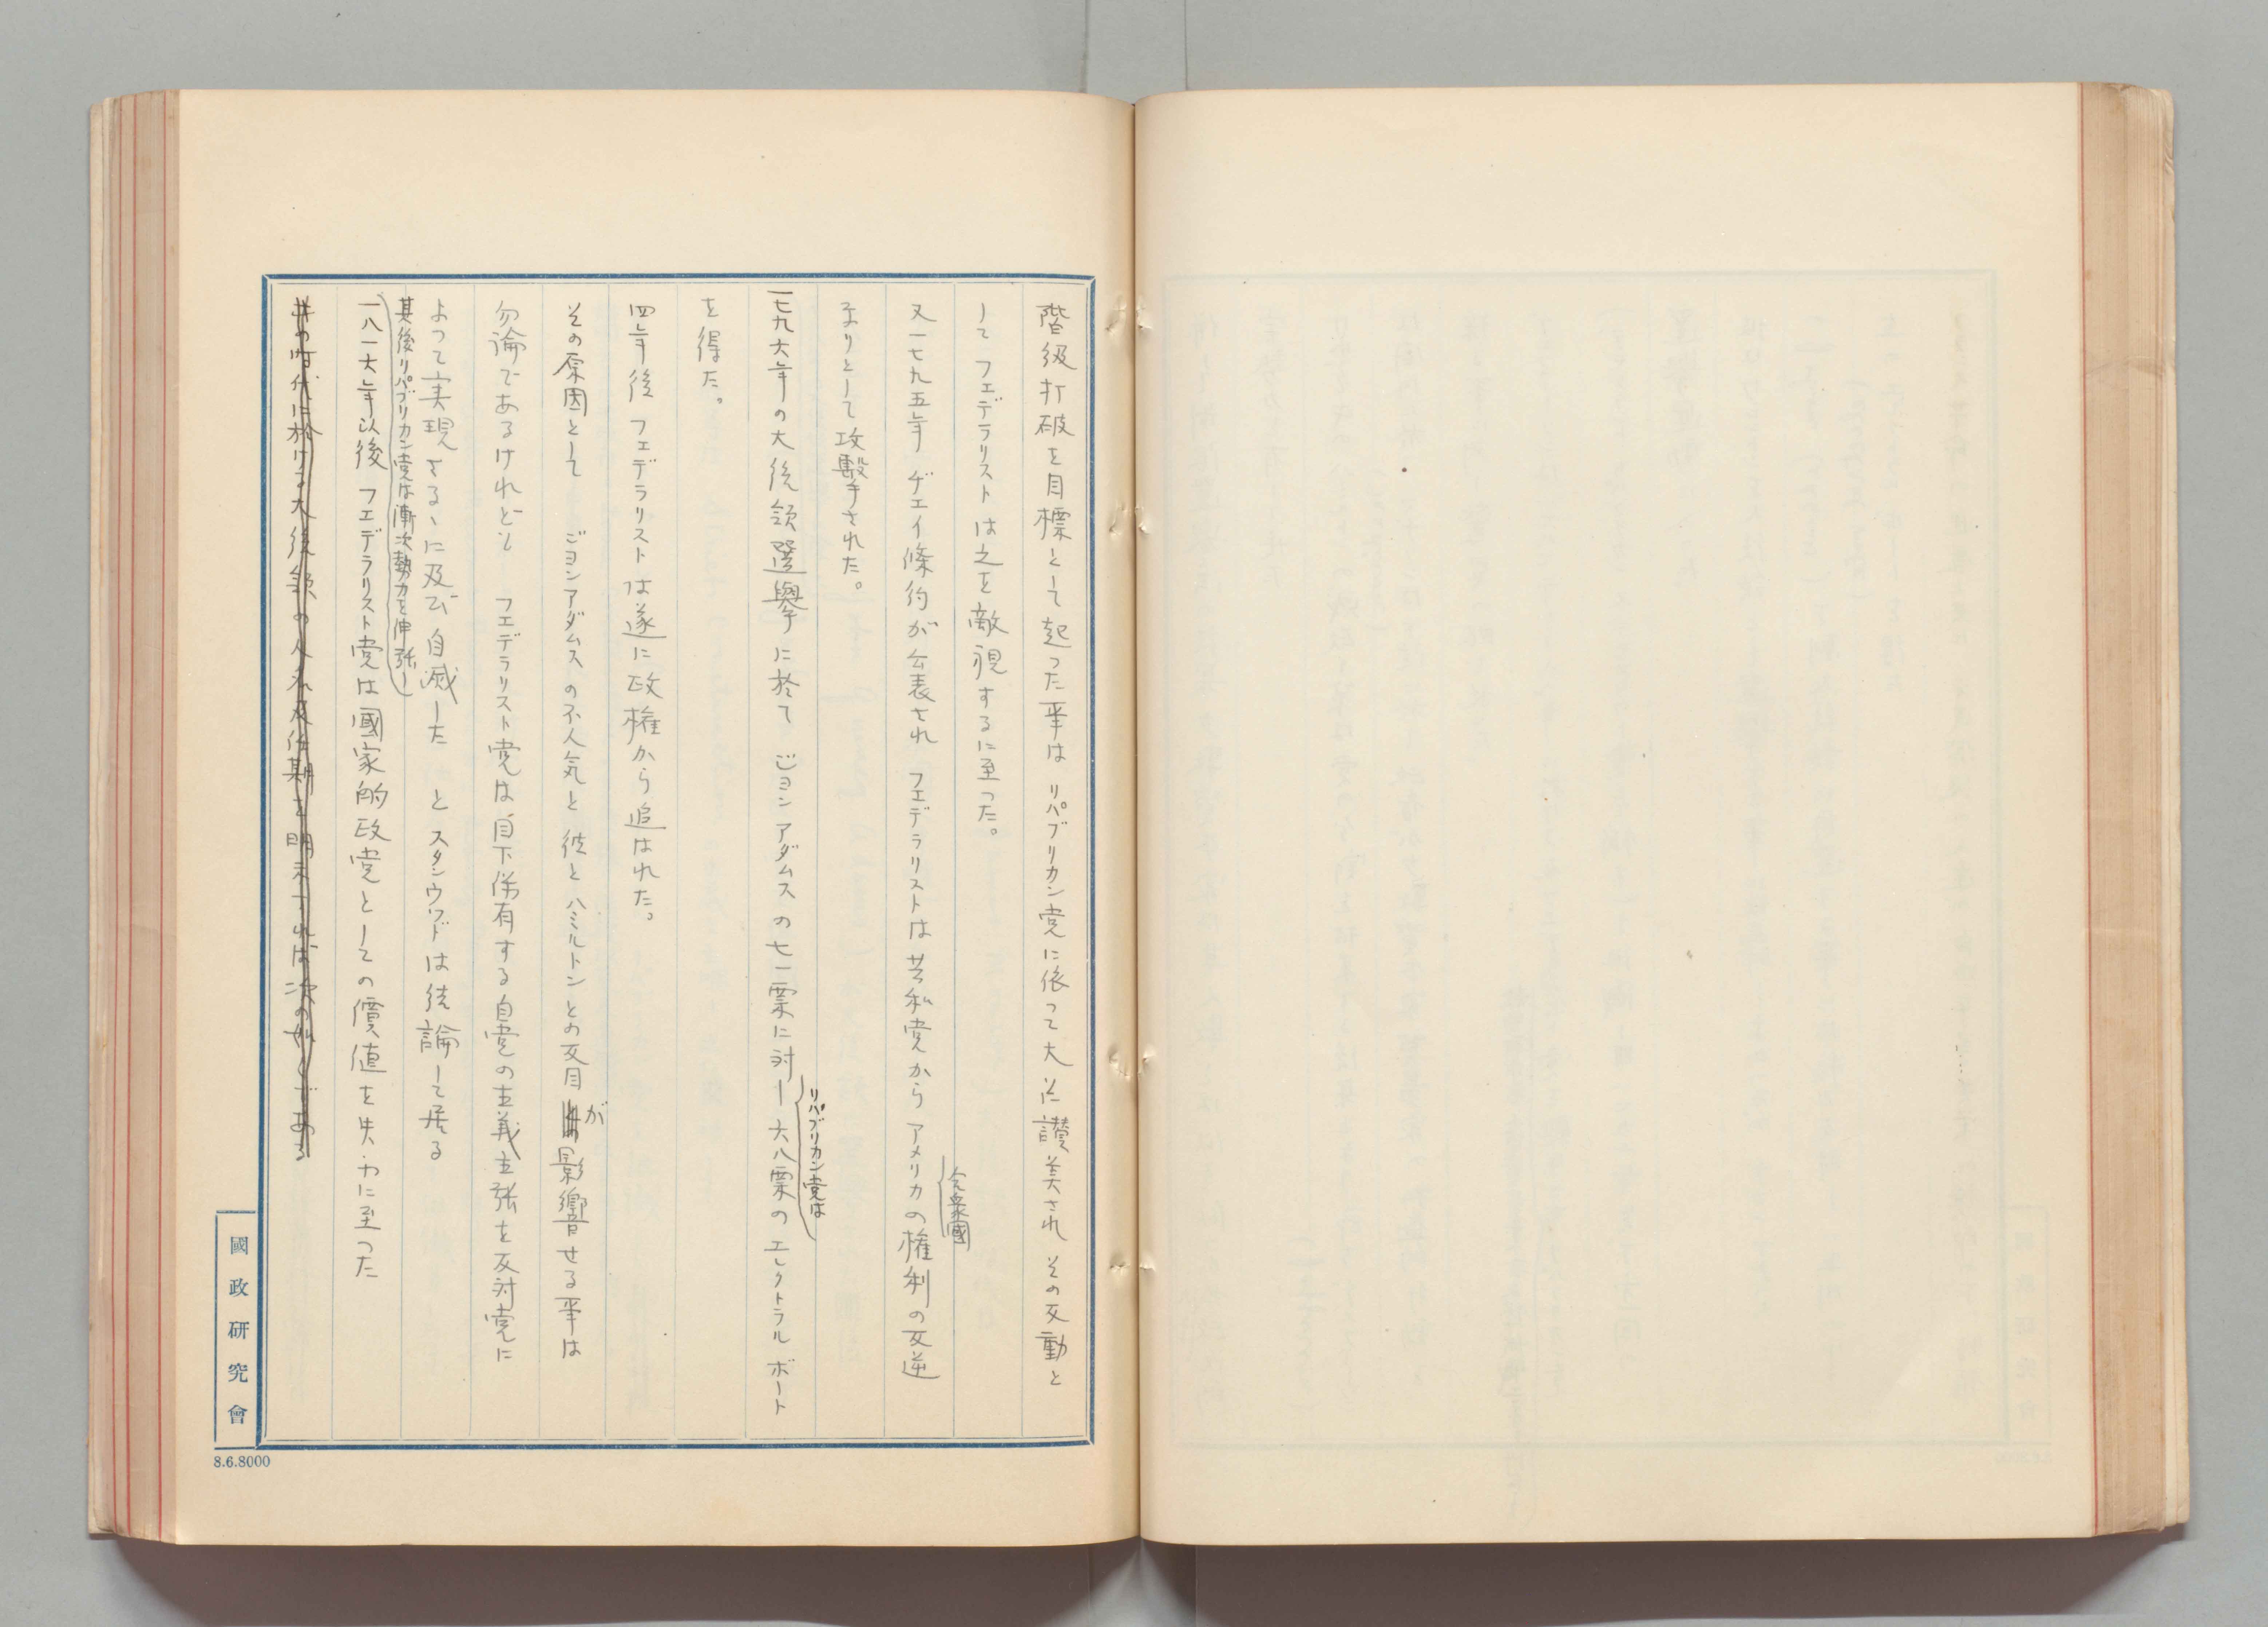 階級打破を目標として起った事は リパブリカン党に依って大に讃美され その反動と
して フェデラリスト は之を敵視するに至った。
又一七九五年 ヂエイ條約が公表され フェデラリストは 共和党から アメリカの権利の反逆
合衆國
なりとして攻撃された。
リパブリカン党は
一七九六年の大統領選擧に於て ジョンアダムスの七一票に対し六八票のエレクトラルボート
を得た。
四年後 フェデラリストは遂に政権から追はれた。
その原因として ジョンアダムスの不人気と 彼とハミルトンとの反目が影響せる事は
勿論であるけれども フェデラリスト党は目下保有する自党の主義主張を反対党に
よって実現さるゝに及び自滅した と スタンウッドは結論して居る
其後リパブリカン党は漸次勢力を伸張し
一八一六年以後 フェデラリスト党は國家的政党としての價値を失ふに至った
此の時代に於ける大統領の人名及任期を明示すれば次の如くである
國政研究會
8.6.8000